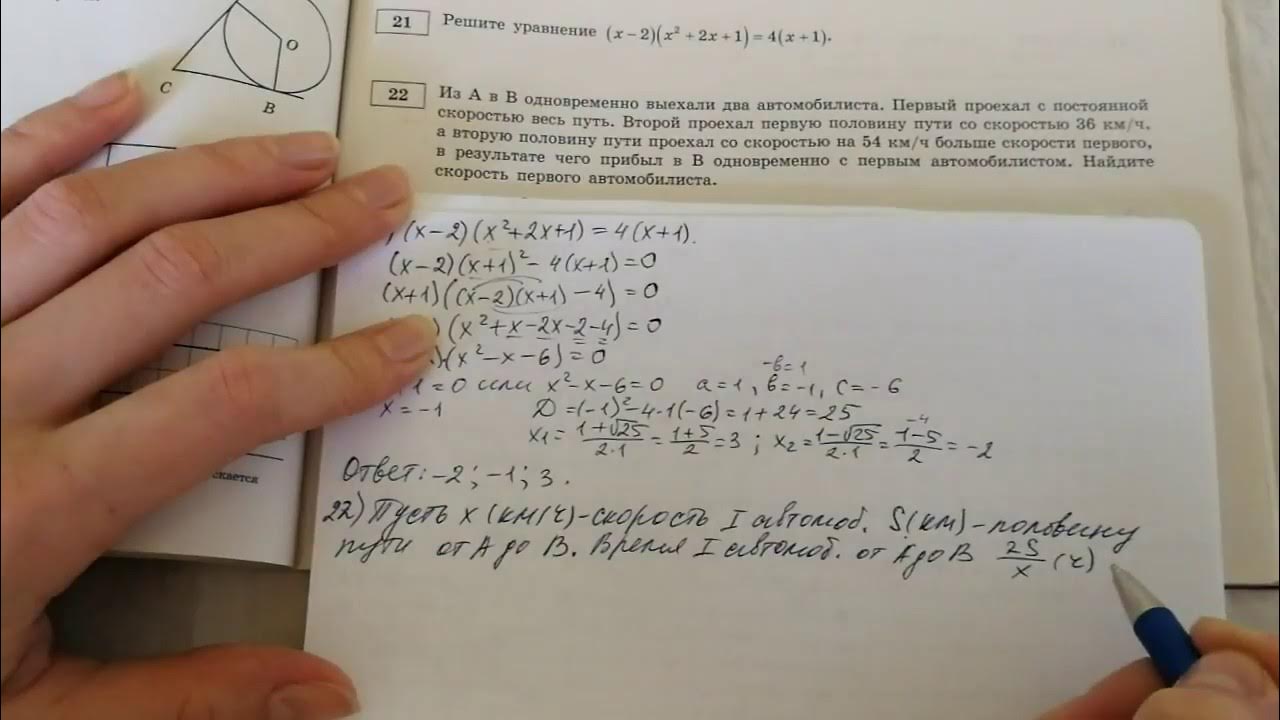 O
C
B
21
Решите уравнение (x − 2)(x² + 2x + 1) = 4(x + 1).
22
Из А в В одновременно выехали два автомобилиста. Первый проехал с постоянной
скоростью весь путь. Второй проехал первую половину пути со скоростью 36 км/ч,
а вторую половину пути проехал со скоростью на 54 км/ч больше скорости первого,
в результате чего прибыл в В одновременно с первым автомобилистом. Найдите
скорость первого автомобилиста.
(x−2)(x²+2x+1)=4(x+1).
(x−2)(x+1)²−4(x+1)=0
(x+1)((x−2)(x+1)−4)=0
)(x²+x−2x−2−4)=0
)(x²−x−6)=0
−в=1
1=0 или x²−x−6=0 a=1, в=−1, c=−6
x=−1 D=(−1)²−4·1(−6)=1+24=25
x₁=(1+√25)/(2·1)=(1+5)/2=3; x₂=(1−√25)/(2·1)=(1−5)/2=−2
−4
Ответ: −2; −1; 3.
скается
22) Пусть x (км/ч)-скорость I автомоб. S(км)-половину
пути от А до В. Время I автомоб. от А до В 2S/x (ч)